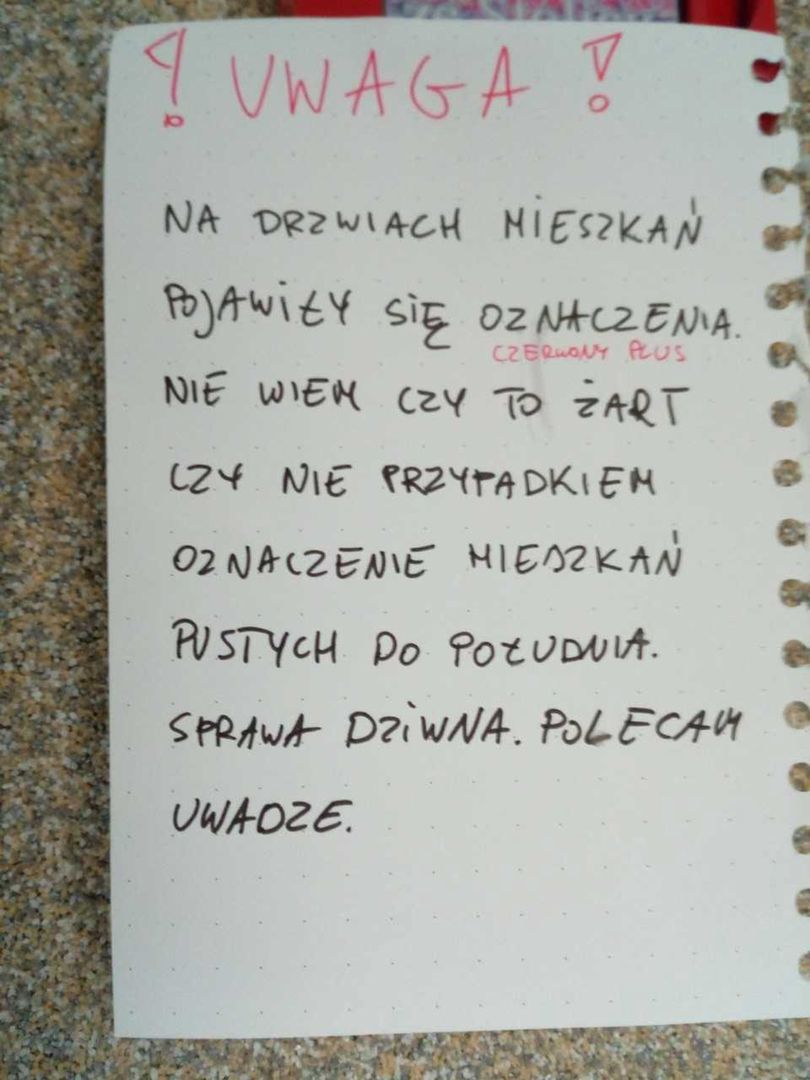 ! UWAGA !
NA DRZWIACH MIESZKAŃ
POJAWIŁY SIĘ OZNACZENIA.
CZERWONY PLUS
NIE WIEM CZY TO ŻART
CZY NIE PRZYPADKIEM
OZNACZENIE MIESZKAŃ
PUSTYCH DO POŁUDNIA.
SPRAWA DZIWNA. POLECAM
UWADZE.